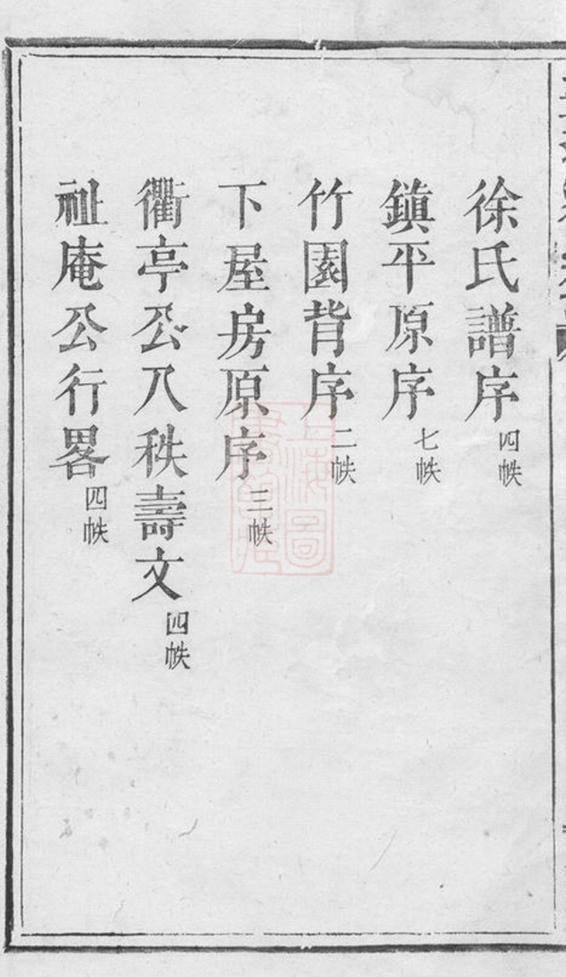 徐氏譜序四帙
鎮平原序七帙
竹園背序二帙
下屋房原序三帙
衢亭公八秩壽文四帙
祉庵公行畧四帙